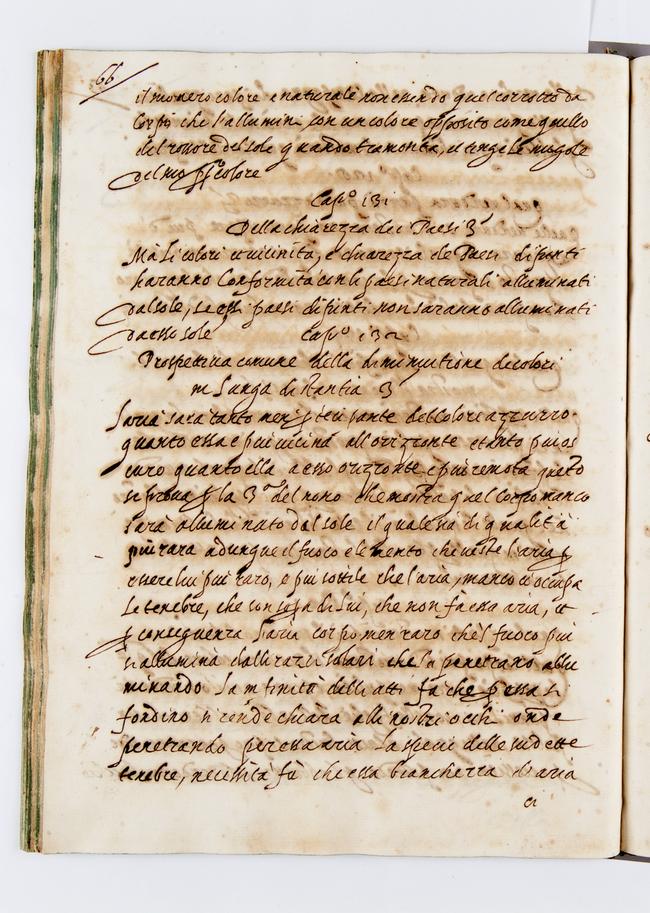 66
il suo vero colore e naturale non essendo quel corrotto da
Corpi che l'allumini con un colore opposito come quello
del rossore del sole quando tramonta, et tinge le nugole
del suo colore
Cap.º 131
Della chiarezza dei Paesi
Mà li colori e vicinità, e chiarezza de Paesi dipinti
haranno Conformità con li paesi naturali alluminati
dal sole, se essi paesi dipinti non saranno alluminati
da esso sole Cap.º 132
Prospettiva comune della diminutione de colori
in Lunga distantia
L'aria sarà tanto men del Colore azzurro
quanto essa e piu vicina all'orizzonte e tanto piu os
curo quanto ella a esso orizzonte e piu remota questo
si prova p la 3ª del nono che mostra quel Corpo manco
sarà alluminato dal sole il quale sia di qualità
più rara adunque il fuoco elemento che veste l'aria p
essere lui piu raro, e piu sottile che l'aria, manco ci occupa
Le tenebre, che son sopra di Lui, che non fà essa aria, et
p conseguenza L'aria corpo men raro che'l fuoco piu
s'allumina dalli razzi solari che la penetrano allu
minando La infinità delli atti fà che p essa si
fondino si rende chiara alli nostri occhi onde
penetrando per essa aria La specie delle sudette
tenebre, necessità fà che essa bianchezza d'aria
ci